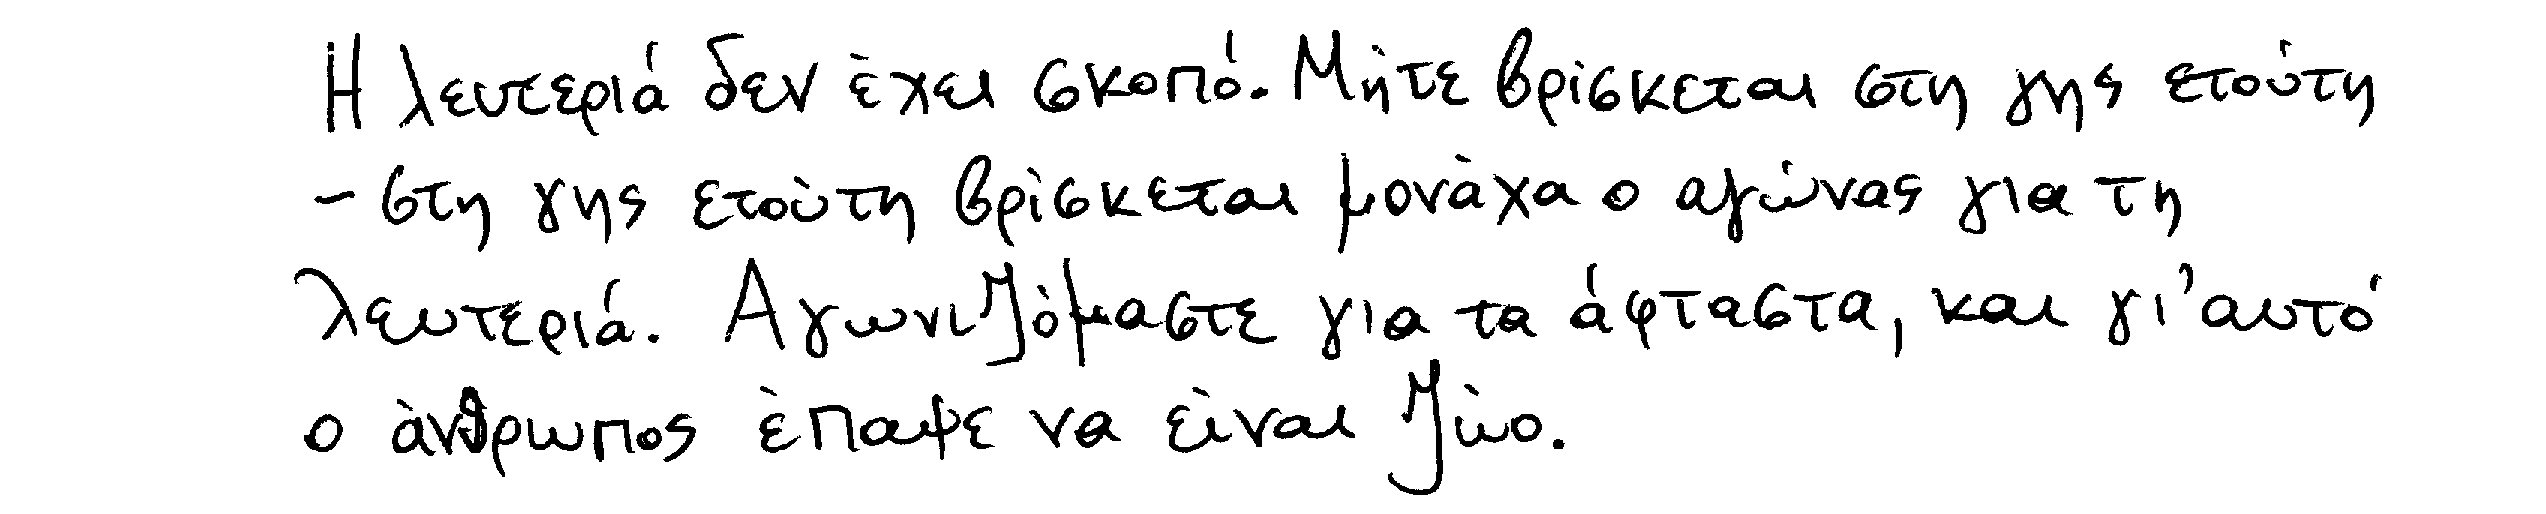 Η λευτεριά δεν έχει σκοπό. Μήτε βρίσκεται στη γης ετούτη
- στη γης ετούτη βρίσκεται μονάχα ο αγώνας για τη
λευτεριά. Αγωνιζόμαστε για τα άφταστα, και γι'αυτό
ο άνθρωπος έπαψε να είναι ζώο.